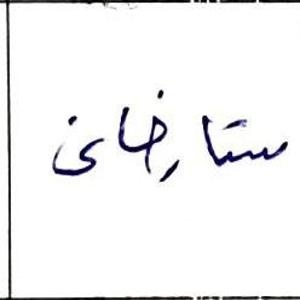 ستارخان